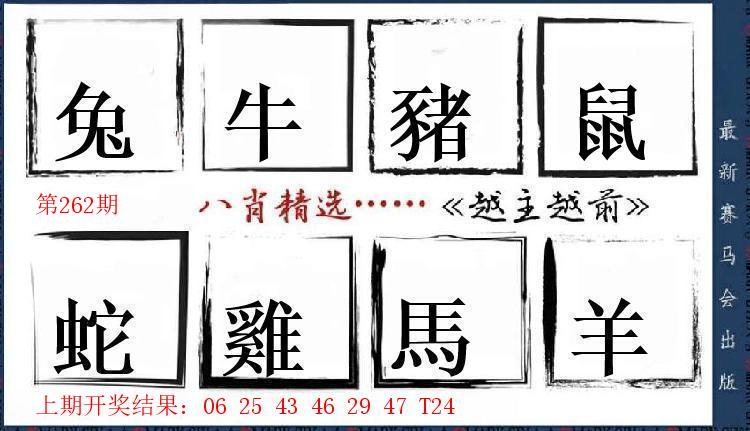 兔 牛 豬 鼠
第262期 八肖精选……《越主越前》
蛇 雞 馬 羊
上期开奖结果：06 25 43 46 29 47 T24
最新赛马会出版